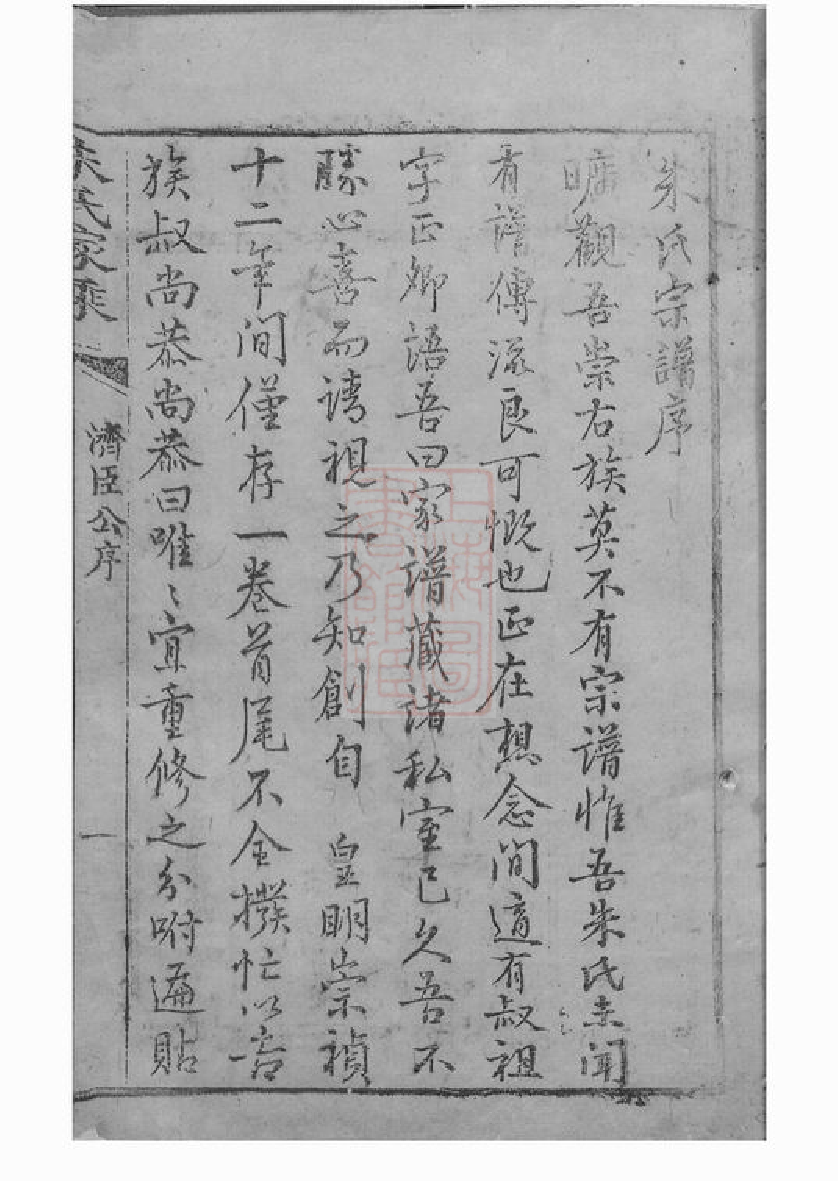 朱氏宗譜序
曠觀吾崇右族莫不有宗譜惟吾朱氏未聞
有譜傳流良可慨也正在想念間適有叔祖
字正卿語吾曰家譜藏諸私室已久吾不
勝心喜而請視之乃知創自 皇明崇禎
十二年間僅存一卷首尾不全撥忙以告
族叔尚恭尚恭曰唯〻宜重修之分咐遍貼
朱氏家乘
濟臣公序
一